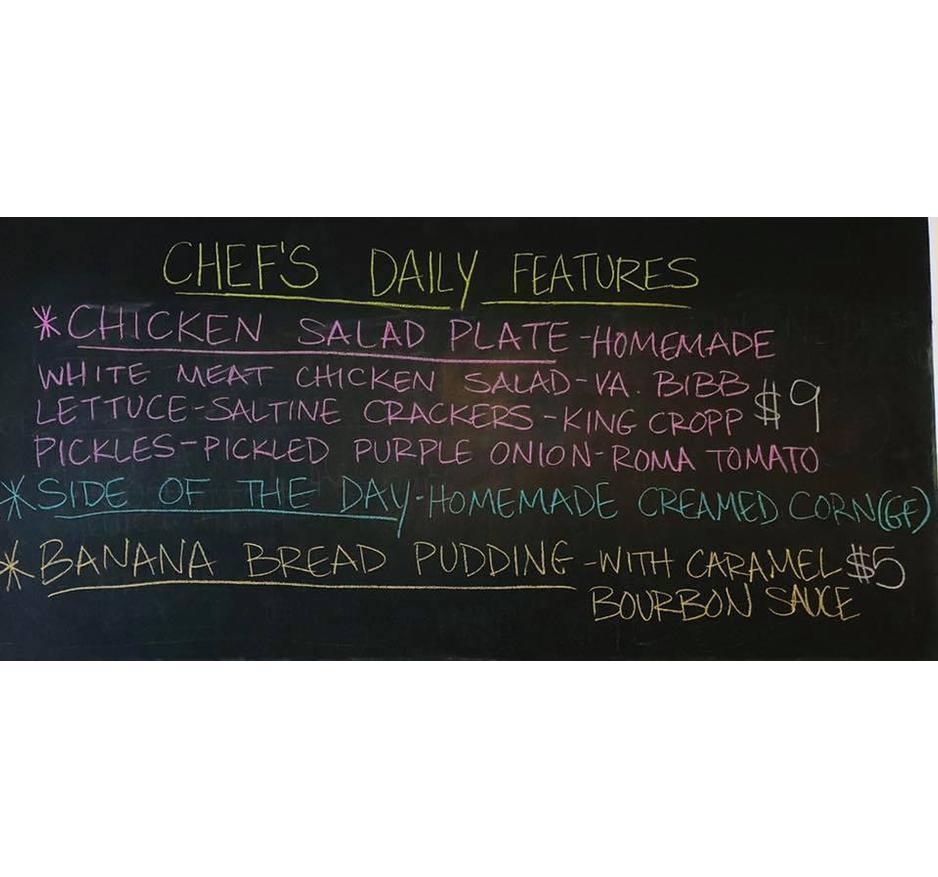 CHEF'S DAILY FEATURES
*CHICKEN SALAD PLATE-HOMEMADE
WHITE MEAT CHICKEN SALAD-VA. BIBB
LETTUCE-SALTINE CRACKERS-KING CROPP $9
PICKLES-PICKLED PURPLE ONION-ROMA TOMATO
*SIDE OF THE DAY-HOMEMADE CREAMED CORN(GF)
*BANANA BREAD PUDDING-WITH CARAMEL $5
BOURBON SAUCE